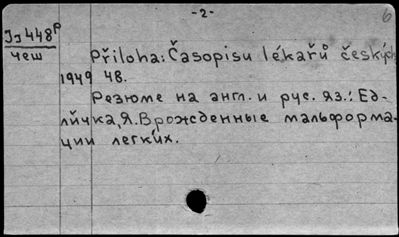 -2-
6
Јз448р
чеш
Příloha: Časopisu lékařů českých
1949 48.
Резюме на англ. и рус. яз.: Ед-
личка, Я. Врожденные мальформа-
ции легких.